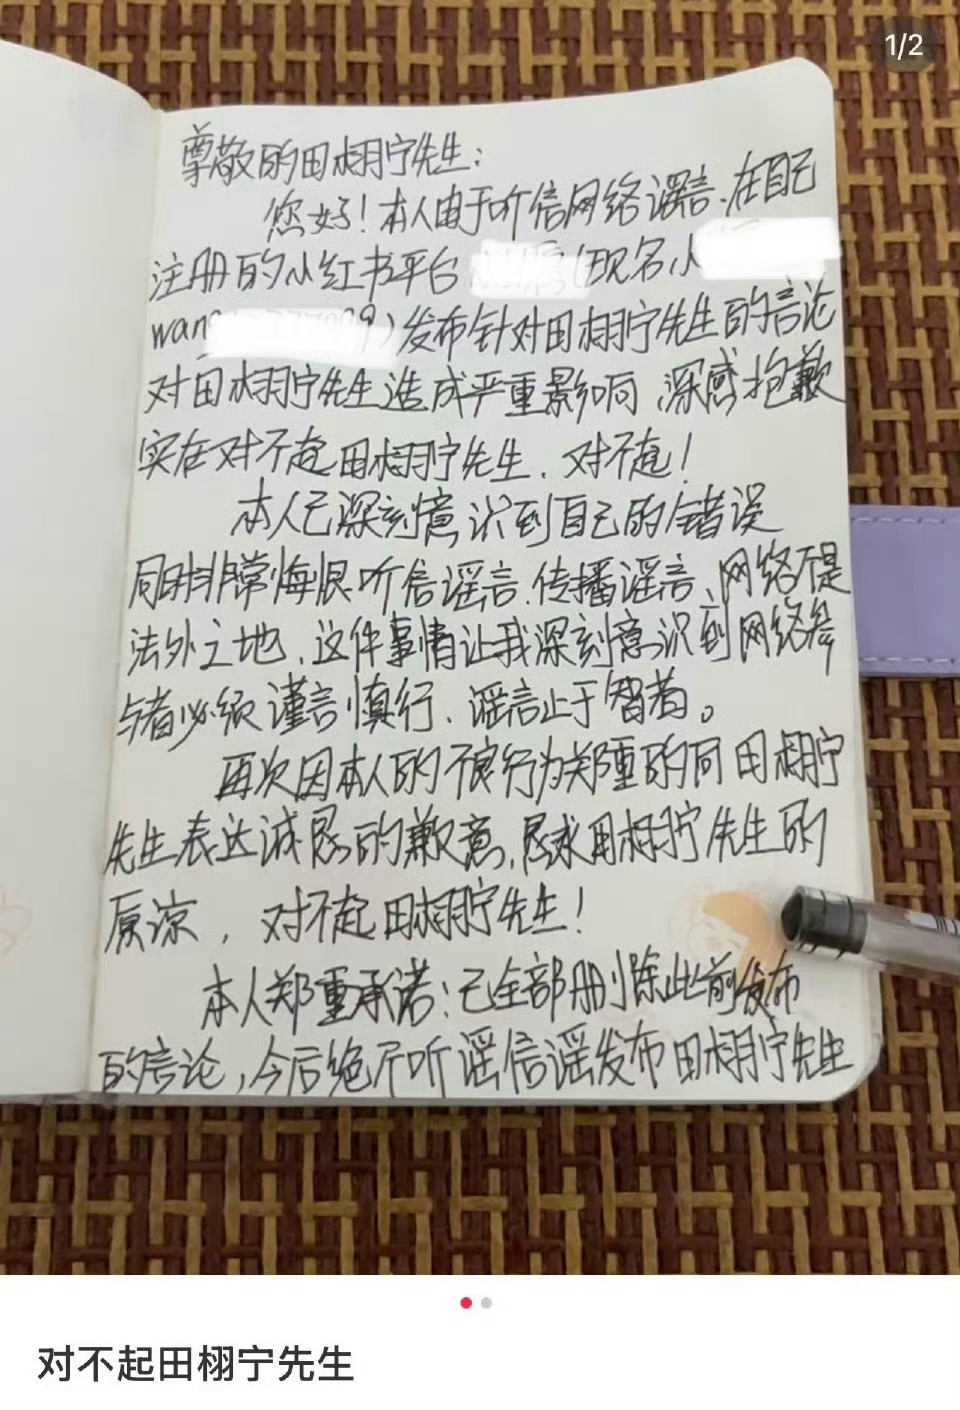 1/2
尊敬的田栩宁先生：
您好！本人由于听信网络谣言、在自己
注册的小红书平台 (现名小
wan 9)发布针对田栩宁先生的言论
对田栩宁先生造成严重影响 深感抱歉
实在对不起田栩宁先生、对不起！
本人已深刻意识到自己的错误
同时非常悔恨听信谣言、传播谣言、网络不是
法外之地、这件事情让我深刻意识到网络参
与者必须谨言慎行、谣言止于智者。
再次因本人的不良行为郑重的向田栩宁
先生表达诚恳的歉意，恳求田栩宁先生的
原谅，对不起田栩宁先生！
本人郑重承诺：已全部删除此前发布
的言论，今后绝不听谣信谣发布田栩宁先生
对不起田栩宁先生